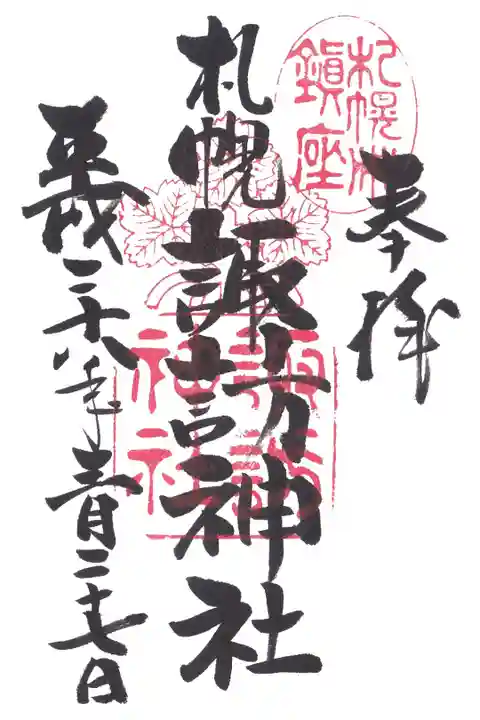 札幌村
鎮座
奉拝
札幌諏訪神社
諏訪
神社
平成二十八年月二十七日